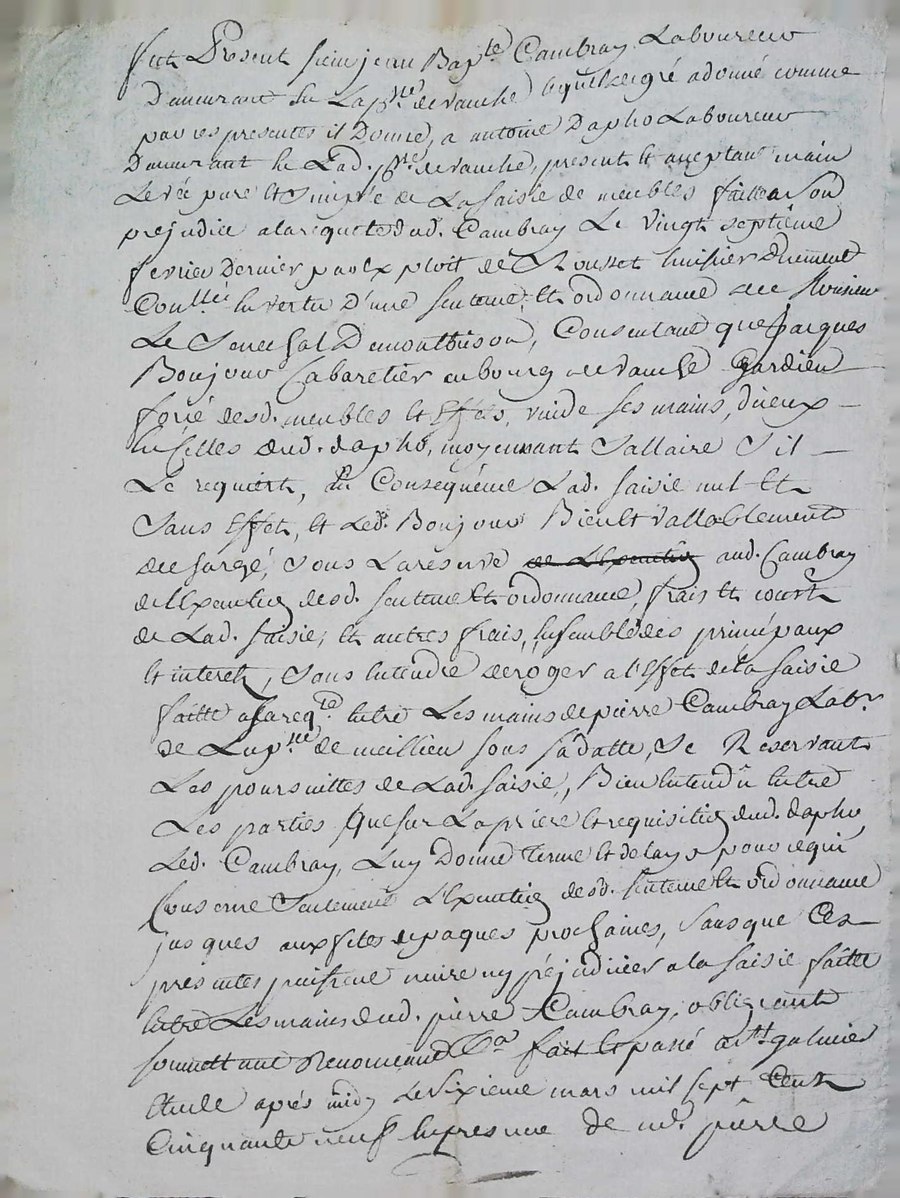 fut Present sieur jean Bap.te Cambray Laboureur
Demeurant en La p.sse de ranche lequel de gré a donné comme
par ces presentes il Donne, a antoine Dapho Laboureur
Demeurant En Lad. p.sse de ranche, present Et acceptant main
Levée pure Et Simple de La saisie de meubles faitte a Son
prejudice a la requete dud. Cambray Le Vingt Septième
fevrier Dernier par Exploit de Rousset huissier Duement
Conllée En vertu D'une sentence Et ordonnance de Monsieur
Le Senechal De montbrison, Consentant que Jacques
Bonjour Cabaretier au bourg de ranche Gardien
forcé desd. meubles Et Effets, vuide ses mains, d'iceux
En Celles dud. dapho, moyennant Sallaire S'il
Le requiert, En Consequence Lad. saisie nul Et
Sans Effet, Et Led. Bonjour Bien Et vallablement
dechargé, Sous La reserve de L'Execution aud. Cambray
de l'Execution desd. sentence Et ordonnance, frais Et court
de Lad. saisie, Et autres frais, Ensemble des principaux
Et interets, Sans Entendre deroger a l'Effet de la saisie
faitte a sa req.te Entre Les mains de pierre Cambray Lab.r
de La p.sse de meillieu sous sa datte, Se Reservant
Les poursuittes de Lad. saisie, Bien Entendu Entre
Les parties que sur La prière Et requisition dud. dapho
Led. Cambray, Luy Donne terme Et delay pour ce qui
Conserne Seulement L'Execution desd. sentence Et ordonnance
jusques aux fetes de paques prochaines, Sans que Ces
presentes puissent nuire ny prejudicier a la saisie faitte
Entre Les mains dud. pierre Cambray, obligeant
soumettant Renonceant fait Et passé a St. galmier
Etude après midy Le Sixieme mars mil sept Cent
Cinquante neuf En presence de m.e pierre